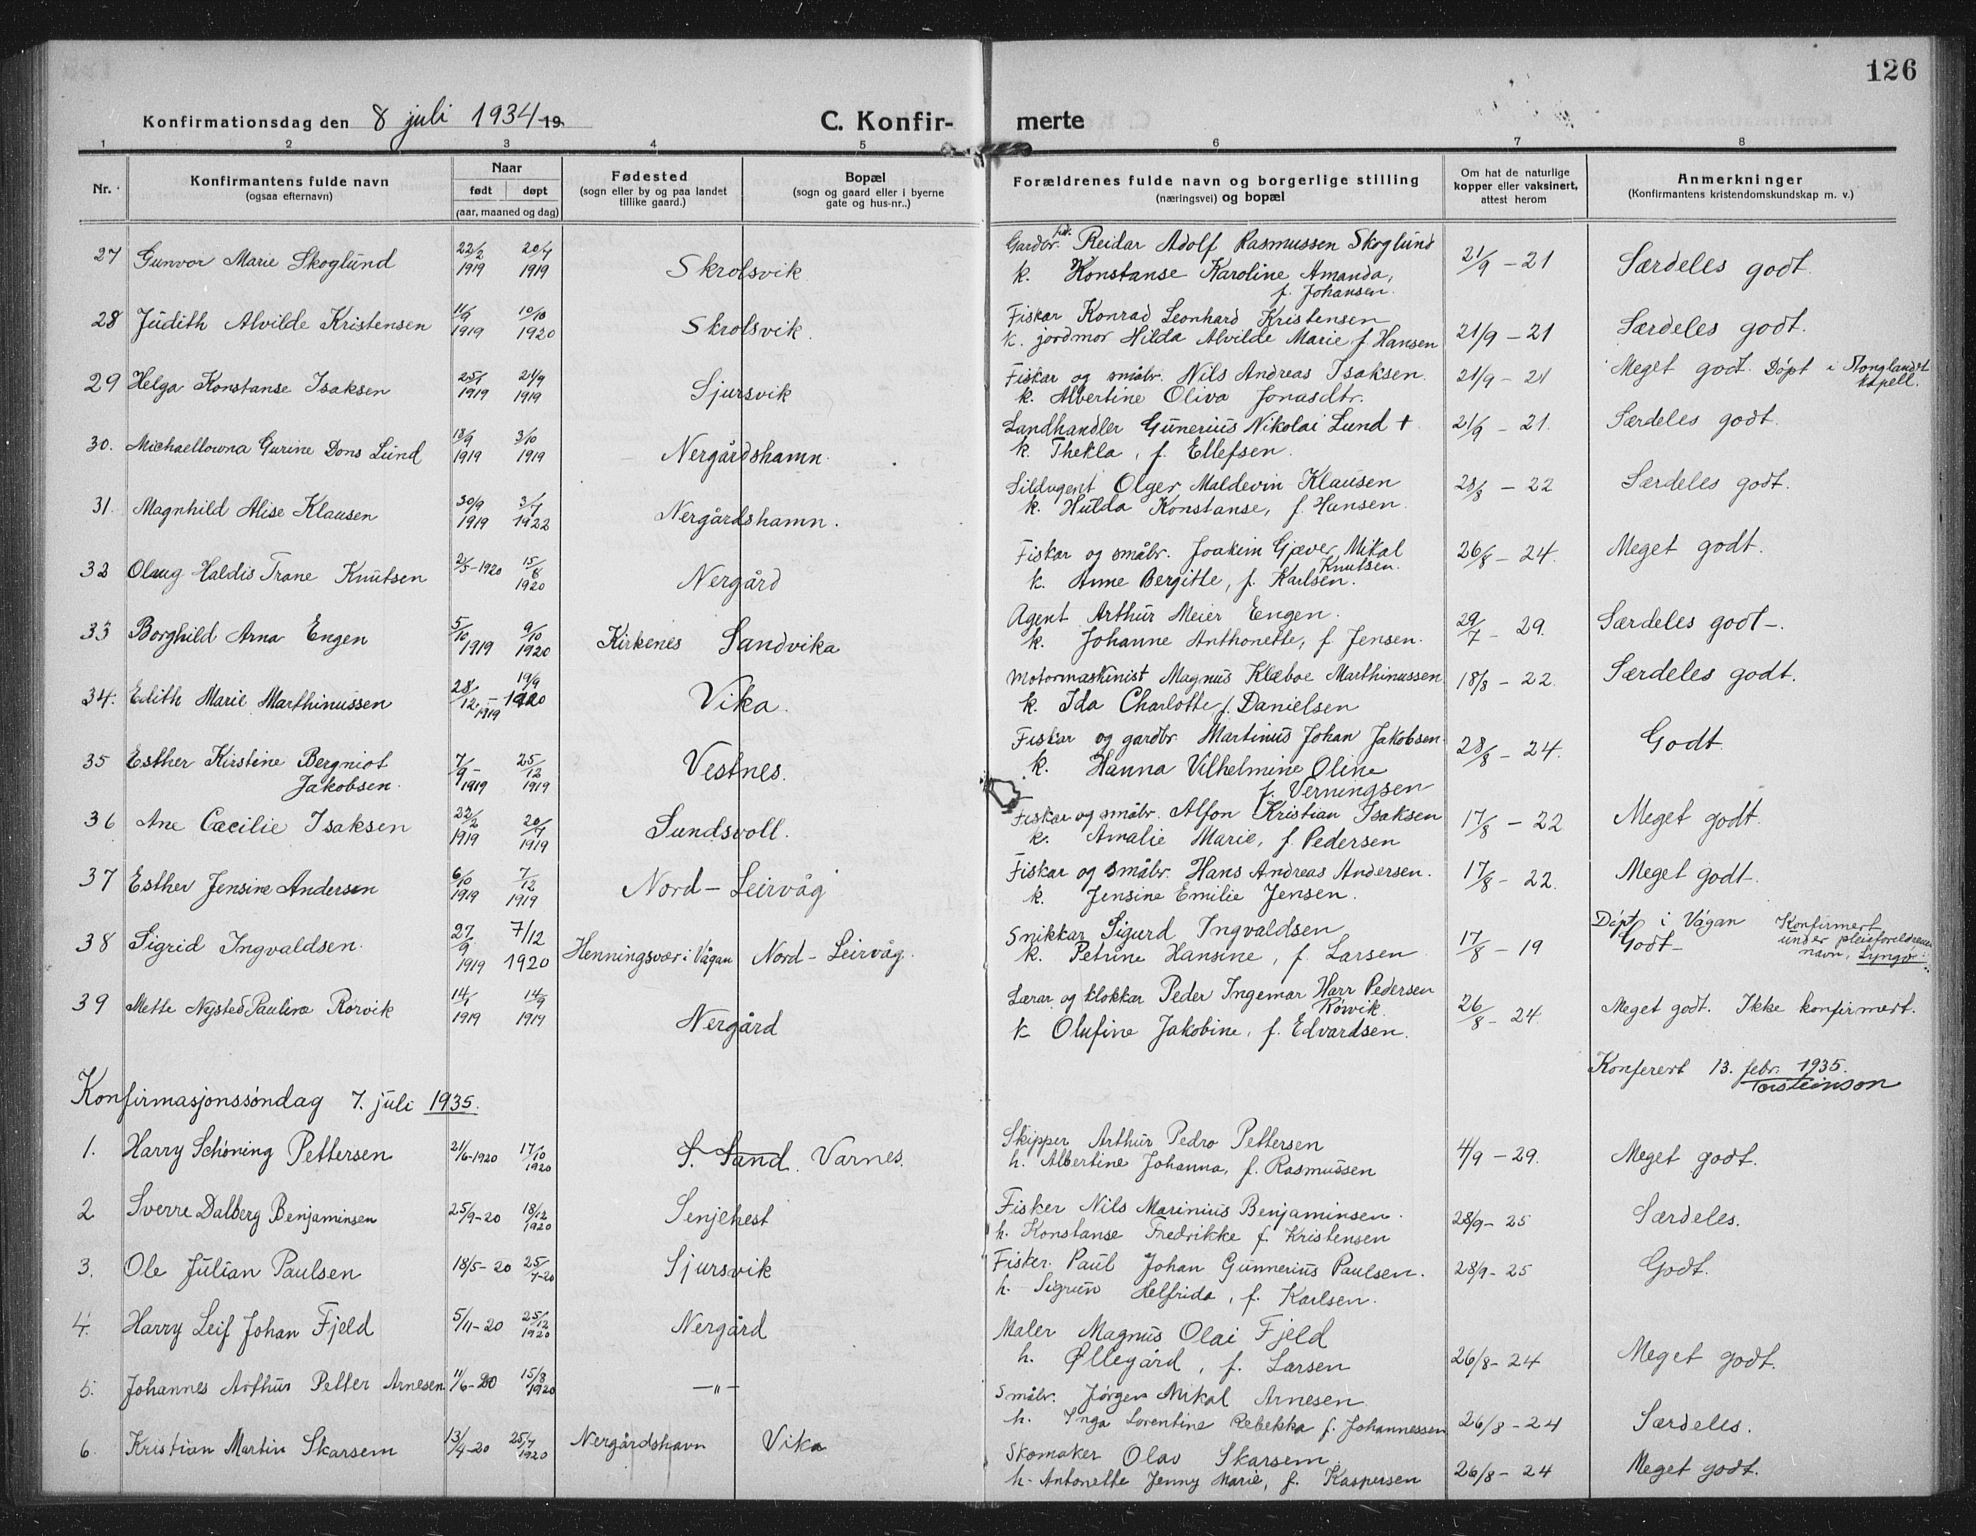 126
Konfirmationsdag den 8 juli 1934 19
C. Konfirmerte
1 2 3 4 5 6 7 8
Nr. Konfirmantens fulde navn (ogsaa efternavn) Naar født døpt (aar, maaned og dag) Fødested (sogn eller by og paa landet tillike gaard.) Bopæl (sogn og gaard eller i byerne gate og hus-nr..) Forældrenes fulde navn og borgerlige stilling (næringsvei) og bopæl Om hat de naturlige kopper eller vaksinert, attest herom Anmerkninger (Konfirmantens kristendomskundskap m. v.)
27 Gunvor Marie Skoglund 22/2 1919 20/7 1919 Skrolsvik. Gardbr. Reidar Adolf Rasmussen Skoglund 21/9 - 21 Særdeles godt.
k. Konstanse Karoline Amanda, f. Johansen.
28 Judith Alvilde Kristensen 11/9 1919 10/10 1920 Skrolsvik. Fiskar Konrad Leonhard Kristensen 21/9 - 21 Særdeles godt.
k. jordmor Hilda Alvilde Marie f Hansen
29 Helga Konstanse Isaksen 25/1 1919 21/9 1919 Sjursvik Fiskar og småbr. Nils Andreas Isaksen. 21/9 - 21 Meget godt. Döpt i Stonglandet kapell.
k. Albertine Oliva Jonasdtr.
30. Michaellowna Gurine Dons Lund 13/9 1919 3/10 1919 Nergårdshamn. Landhandler Gunerius Nikolai Lund + 21/9 - 21. Særdeles godt.
k. Thekla, f. Ellefsen.
31. Magnhild Alise Klausen 30/9 1919 3/7 1922 Nergårdshamn. Sildagent Olger Maldevin Klausen 28/8 - 22 Særdeles godt.
k. Hulda Konstanse, f. Hansen.
32 Olaug Haldis Trane Knutsen 2/5-1920 15/8 1920 Nergård Fiskar og småbr. Joakim Gjæver Mikal Knutsen. 26/8 - 24. Meget godt.
k. Anne Bergitte, f. Karlsen.
33 Borghild Arna Engen 5/10 1919 9/10 1920 Kirkenes Sandvika Agent Arthur Meier Engen. 29/7 - 29. Særdeles godt-.
k. Johanne Anthonette, f Jensen.
34. Edith Marie Marthinussen 28/12 - 1919 19/9 1920 Vika. Motormaskinist Magnus Klæboe Marthinussen 18/8 - 22. Særdeles godt.
k. Ida Charlotte f. Danielsen
35 Esther Kirstine Bergniot Jakobsen. 7/9 - 1919 25/12 1919 Vestnes. Fiskar og gardbr. Martinus Johan Jakobsen. 28/8 - 24. Godt
k. Hanna Vilhelmine Oline f. Verningsen
36 Ane Cæcilie Isaksen 22/2 1919 20/7 1919 Sundsvoll. Fiskar og småbr. Alfon Kristian Isaksen 17/8 - 22 Meget godt
k. Amalie Marie, f. Pedersen
37 Esther Jensine Andersen 6/10 1919 7/12 1919 Nord-Leirvåg Fiskar og småbr. Hans Andreas Andersen. 17/8 - 22. Meget godt.
k. Jensine Emilie Jensen.
38 Sigrid Ingvaldsen. 27/9 1919 7/12 1920 Henningsvær i Vågan Nord-Leirvåg. Snikkar Sigurd Ingvaldsen 17/8 - 19 Döpt i Vågan Godt- Konfirmert under pleieforeldrenes navn, Lyngø.
k. Petrine Hansine, f. Larsen
39 Mette Nysted Paulina Rørvik 14/1 1919 14/9 1919 Nergård Lærar og klokkar Peder Ingemar Harr Pedersen Rörvik. 26/8 - 24. Meget godt. Ikke konfirmert.
k Olufine Jakobine, f. Edvardsen.
Konferert 13. febr. 1935. Torsteinson
Konfirmasjonssöndag 7. juli 1935.
1. Harry Schöning Pettersen 21/6-1920 17/10 1920 S. Sand. Varnes. Skipper Arthur Pedro Pettersen 4/9 - 29. Meget godt.
h. Albertine Johanna, f. Rasmussen
2 Sverre Dalberg Benjaminsen 25/9-20 18/12 1920 Senjehest Fisker Nils Marinius Benjaminsen. 28/9 - 25 Særdeles.
h. Konstanse Fredrikke f. Kristensen
3. Ole Julian Paulsen 18/5-20 25/7-20 Sjursvik Fisker. Paul Johan Gunnerius Paulsen. 28/9 - 25 Godt.
h. Sigrun Helfrida, f. Karlsen.
4. Harry Leif Johan Fjeld 5/11-20 25/12 1920 Nergård Maler Magnus Olai Fjeld 26/8 - 24 Meget godt.
h. Øllegård, f. Larsen
5. Johannes Arthur Petter Arnesen 11/6-20 15/8 1920 -"- Småbr. Jørgen Mikal Arnesen 26/8 - 24 Særdeles.
h. Inga Lorentine Rebekka f. Johannessen
6. Kristian Martin Skarsem 13/4-20 25/7 1920 Nergårdshavn Vika Skomaker Olav Skarsem 26/8 - 24 Meget godt.
h. Antonette Jenny Marie, f. Kaspersen